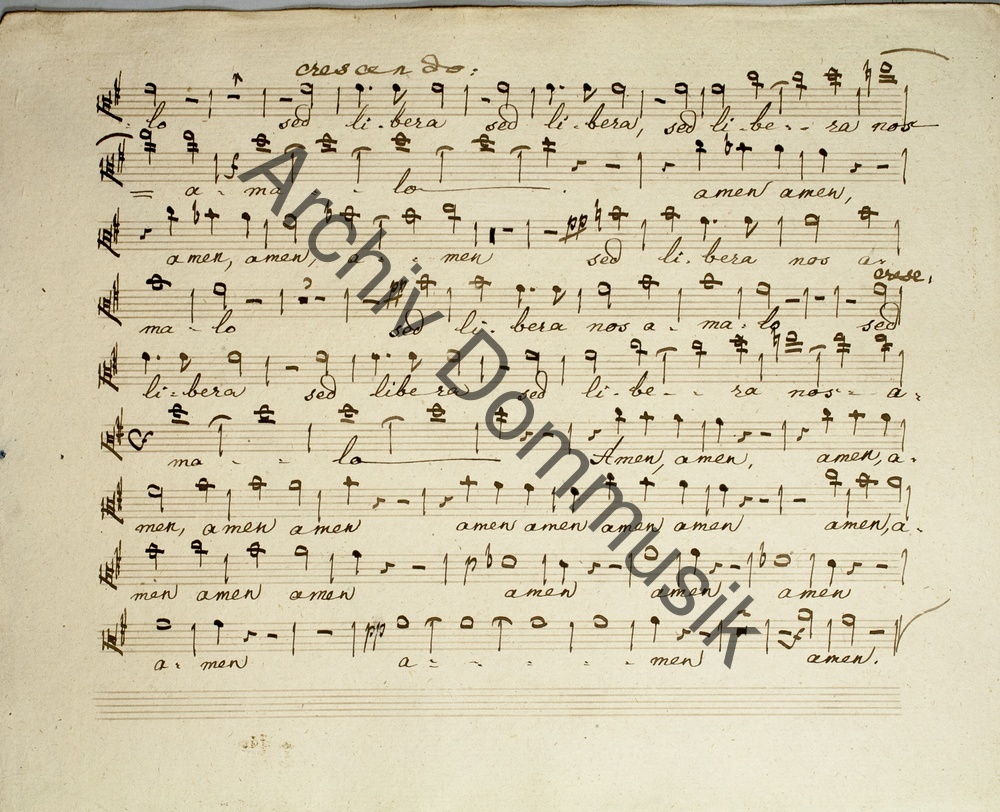 crescendo:
lo sed li-bera sed li-bera, sed li-be-ra nos
a-ma-lo amen amen,
amen, amen, a-men pp sed li-bera nos a-
cresc.
ma-lo pp sed li-bera nos a-ma-lo sed
li-bera sed libera sed li-be-ra nos-a-
ma-lo Amen, amen, amen, a-
men, amen amen amen amen amen amen amen, a-
men amen amen p amen amen amen
a-men pp a-men f amen.
Archiv Dommusik